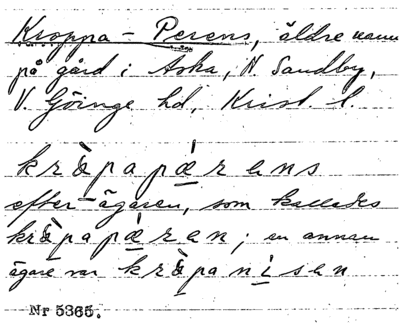 Kroppa-Perens, äldre namn
på gård i Aska, N. Sandby,
V. Göinge hd, Krist. l.
kràpapǽrens
efter ägaren, som kallades
kràpapǽren; en annan
ägare var kràpanísen
Nr 5365.